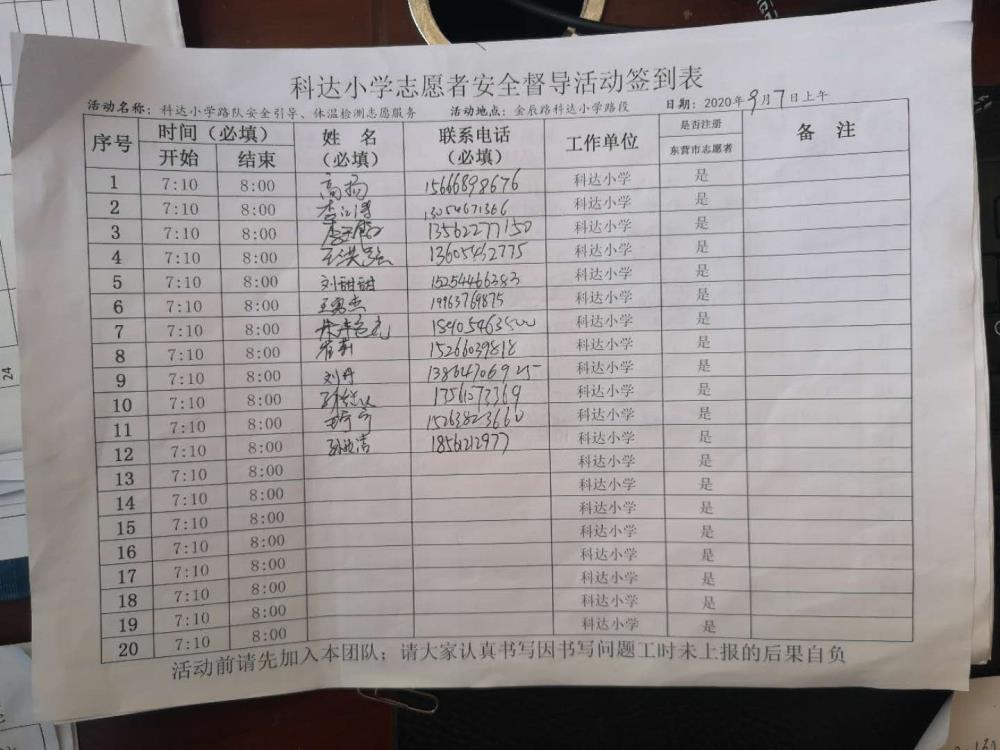 科达小学志愿者安全督导活动签到表
活动名称：科达小学路队安全引导、体温检测志愿服务 活动地点：金辰路科达小学路段 日期：2020年9月7日上午
序号 时间（必填） 姓 名（必填） 联系电话（必填） 工作单位 是否注册 备 注
开始 结束 东营市志愿者
1 7:10 8:00 高杨 15666898676 科达小学 是
2 7:10 8:00 13054671366 科达小学 是
3 7:10 8:00 13562277150 科达小学 是
4 7:10 8:00 王洪强 13605462775 科达小学 是
5 7:10 8:00 刘甜甜 15254466383 科达小学 是
6 7:10 8:00 19963769875 科达小学 是
7 7:10 8:00 科达小学 是
8 7:10 8:00 崔莉 15266039818 科达小学 是
9 7:10 8:00 刘丹 13864706925 科达小学 是
10 7:10 8:00 科达小学 是
11 7:10 8:00 15263823660 科达小学 是
12 7:10 8:00 18561212977 科达小学 是
13 7:10 8:00 科达小学 是
14 7:10 8:00 科达小学 是
15 7:10 8:00 科达小学 是
16 7:10 8:00 科达小学 是
17 7:10 8:00 科达小学 是
18 7:10 8:00 科达小学 是
19 7:10 8:00 科达小学 是
20 7:10 8:00 科达小学 是
活动前请先加入本团队；请大家认真书写因书写问题工时未上报的后果自负
24